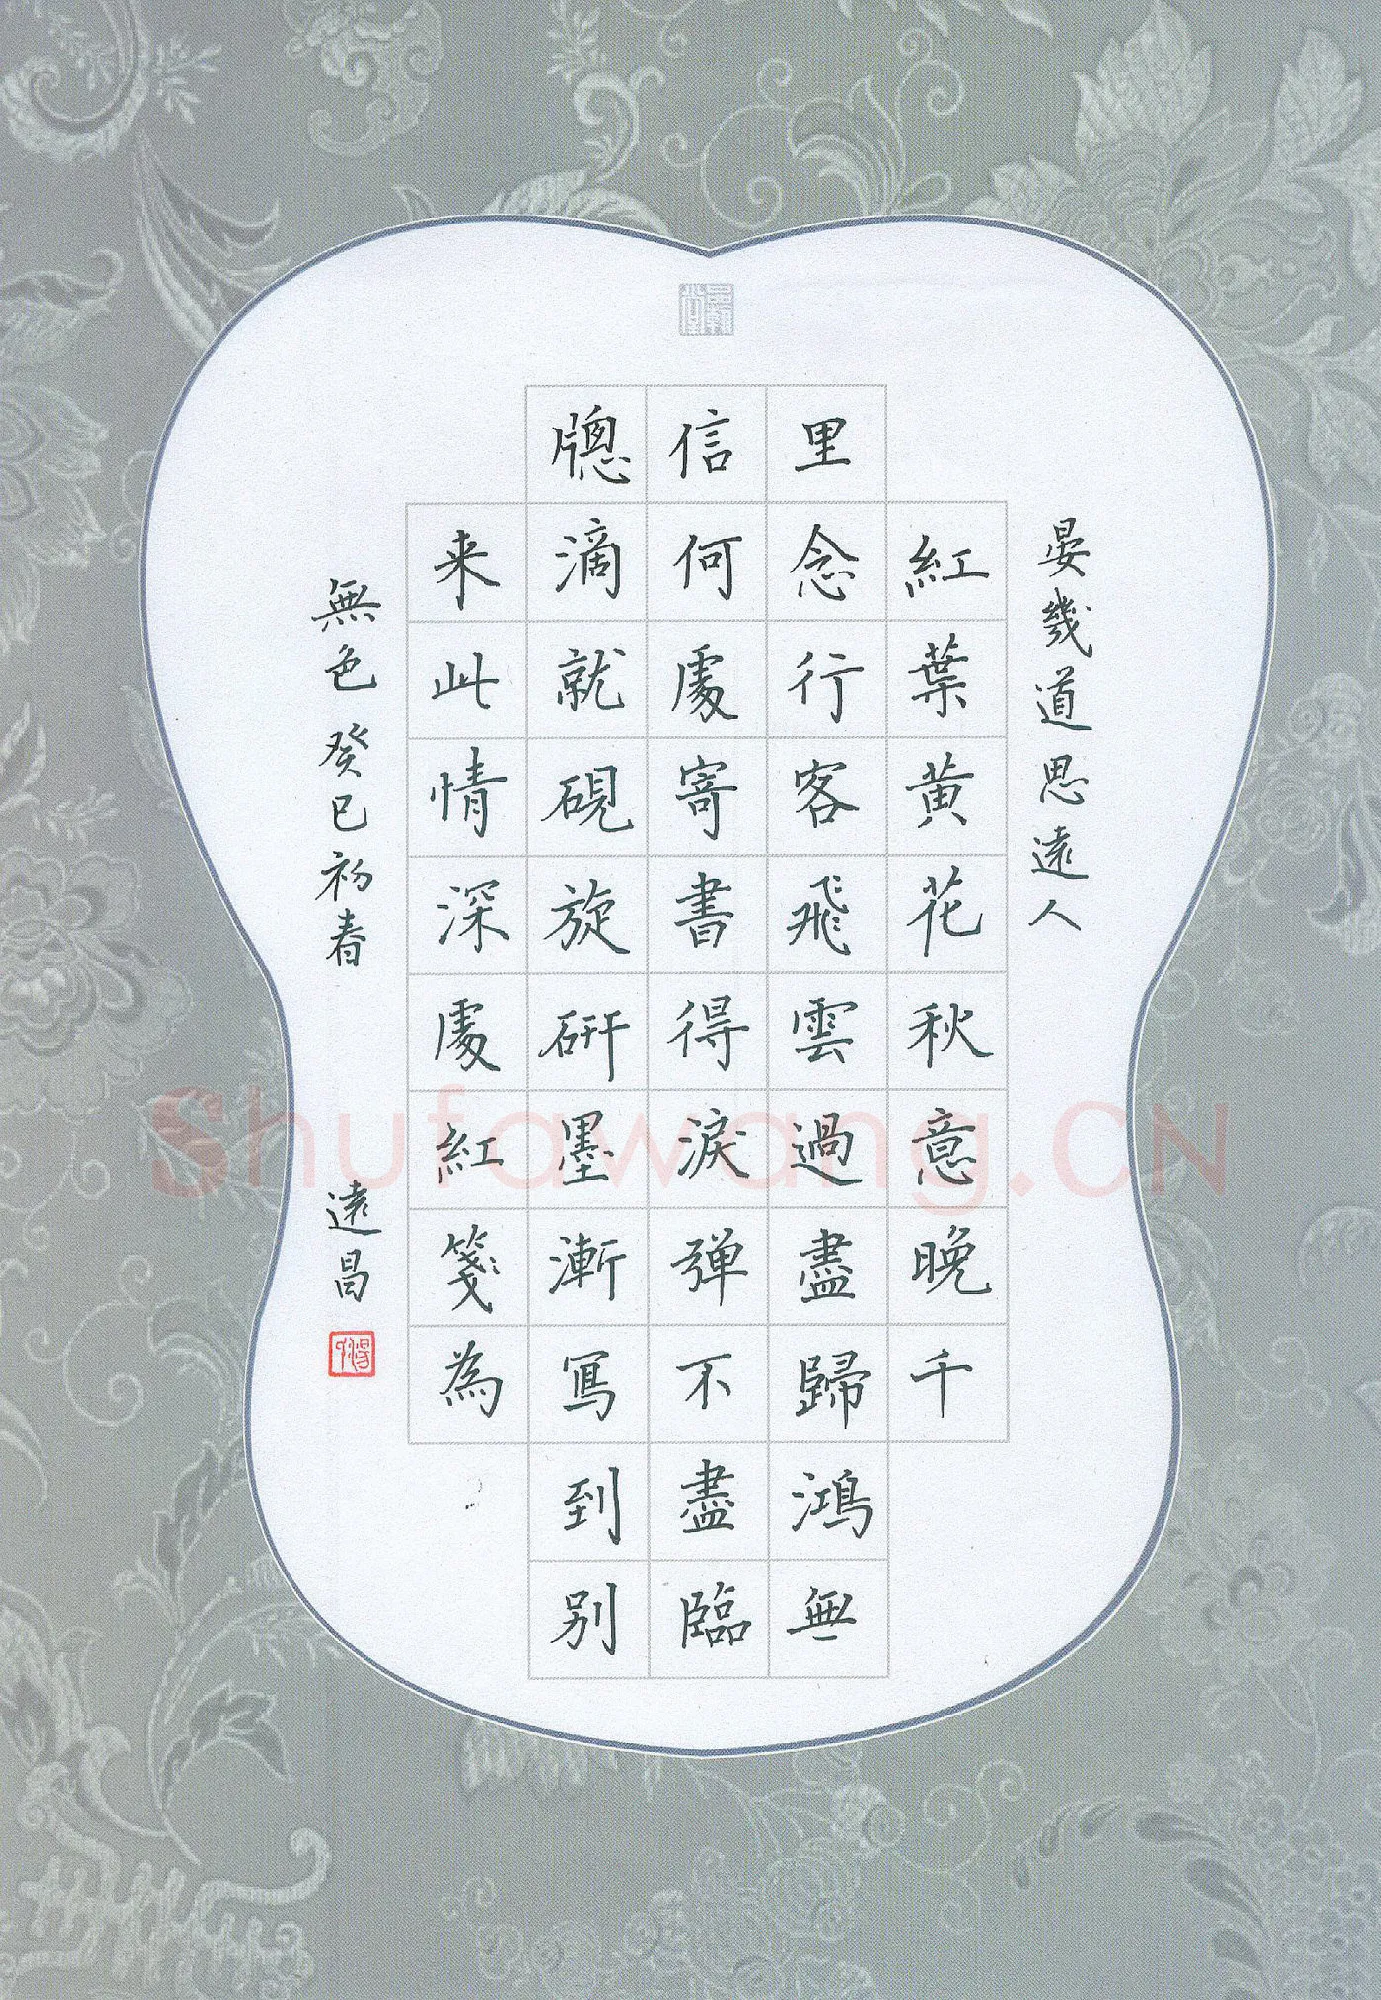 晏幾道思遠人
紅葉黃花秋意晚千
里念行客飛雲過盡歸鴻無
信何處寄書得淚彈不盡臨
牕滴就硯旋研墨漸寫到别
来此情深處紅箋為
無色 癸巳初春 遠昌
Shufawang.CN